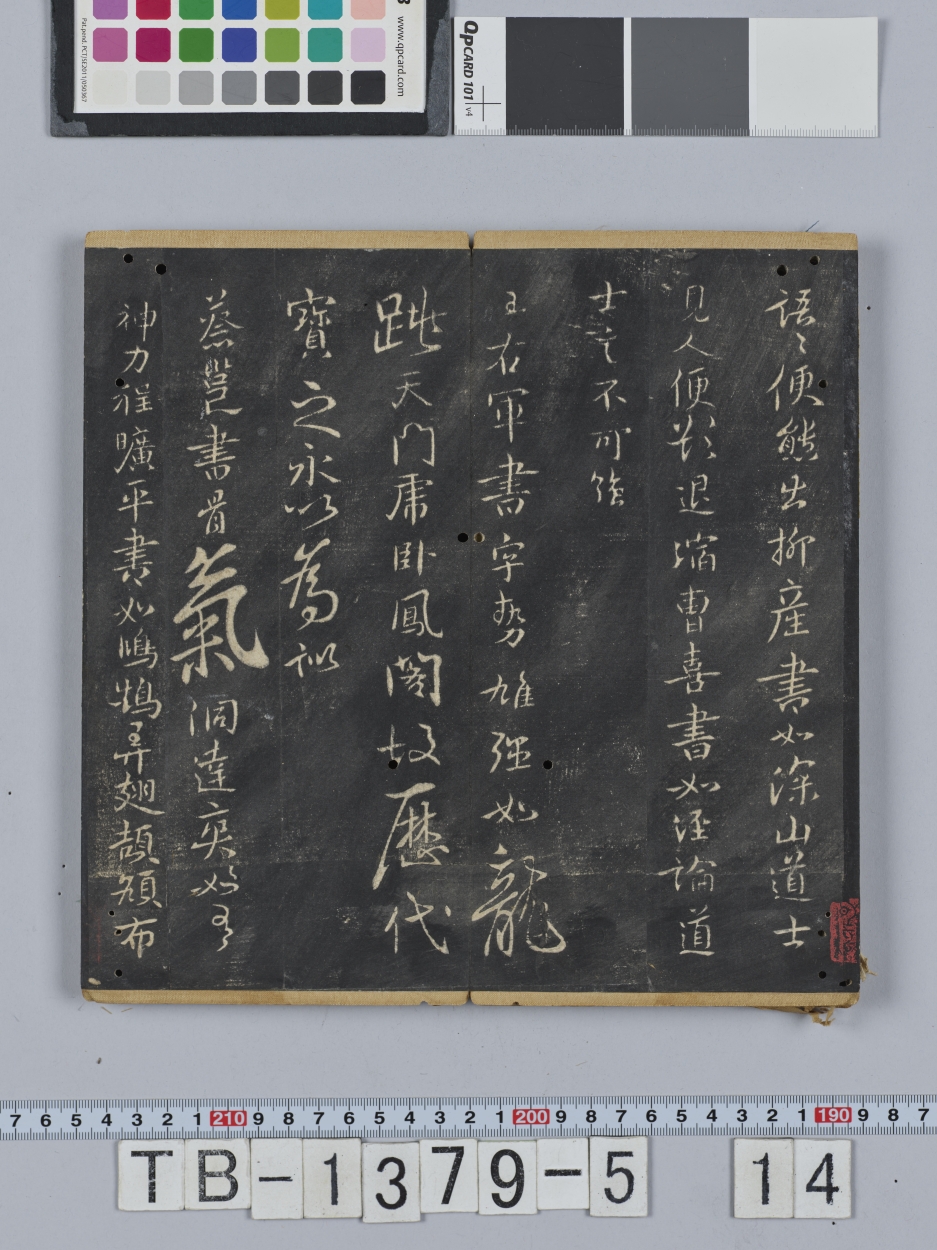 語〻便態出柳産書如深山道士
見人便欲退縮曹喜書如經論道
士言不可強
王右軍書字勢雄强如龍
跳天門虎臥鳳閣故歷代
寶之永以為訓
蔡邕書骨氣洞達爽如有
神力程曠平書如鴻鵠弄翅頡頏布
www.qpcard.com
Pat.pend. PCT/SE2011/050367
QPCARD 101 v4
7 6 5 4 3 2 1 210 9 8 7 6 5 4 3 2 1 200 9 8 7 6 5 4 3 2 1 190 9 8 7
TB-1379-5 14